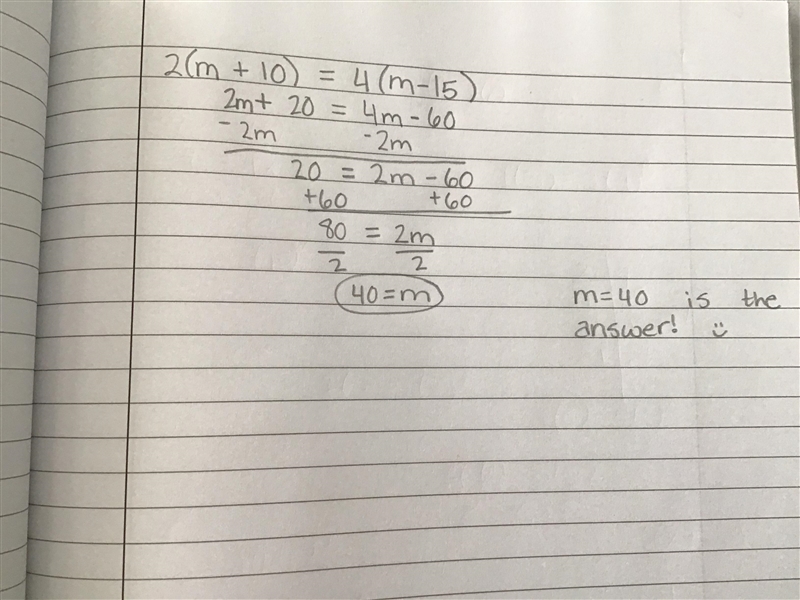 2(m + 10) = 4(m-15)
2m+ 20 = 4m-60
-2m -2m
20 = 2m-60
+60 +60
80 = 2m
2 2
40=m
m=40 is the
answer! :)